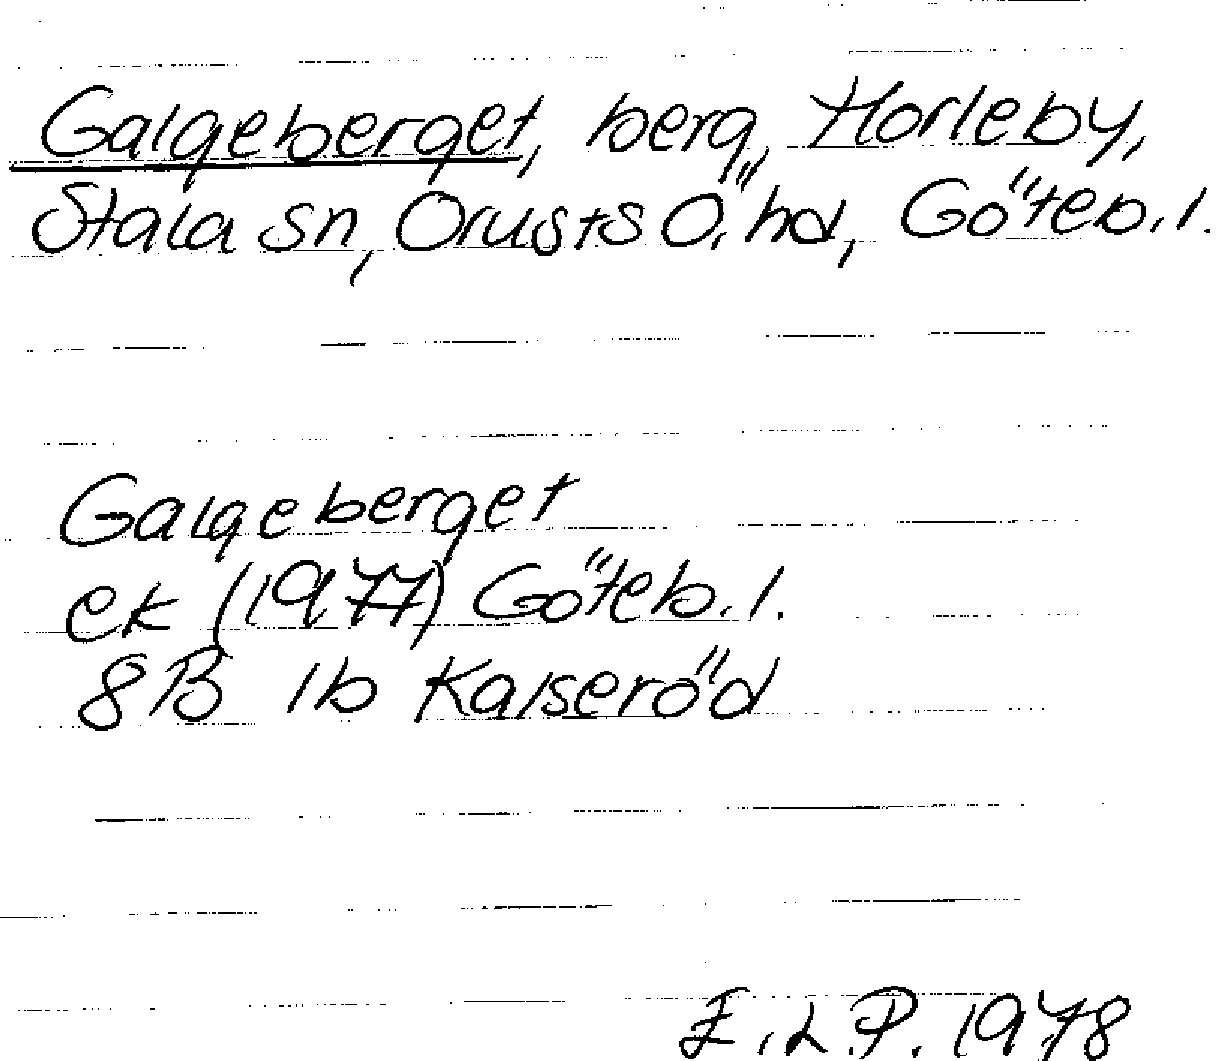 Galgeberget, berg, Horleby,
Stala sn, Orusts Ö. hd, Göteb. l.
Galgeberget
ek (1977) Göteb. l.
8B 1b Kalseröd
E. L. P. 1978